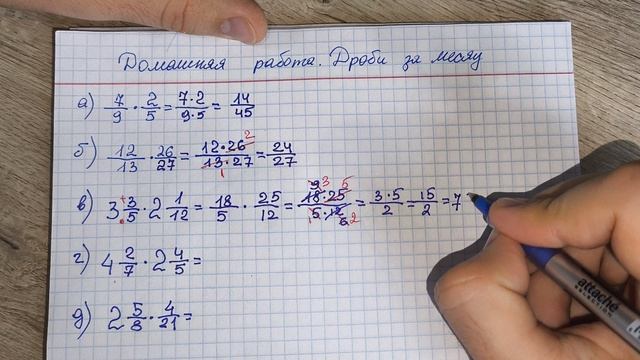 Домашняя работа. Дроби за месяц
а) 7/9 · 2/5 = 7·2/9·5 = 14/45
б) 12/13 · 26/27 = 12·26 2/13·27 1 = 24/27
в) 3 3/5 · 2 1/12 = 18/5 · 25/12 = 18·25 9 3 5/5·12 1 6 2 = 3·5/2 = 15/2 = 7
г) 4 2/7 · 2 4/5 =
д) 2 5/8 · 4/21 =
attaché
SELECTION